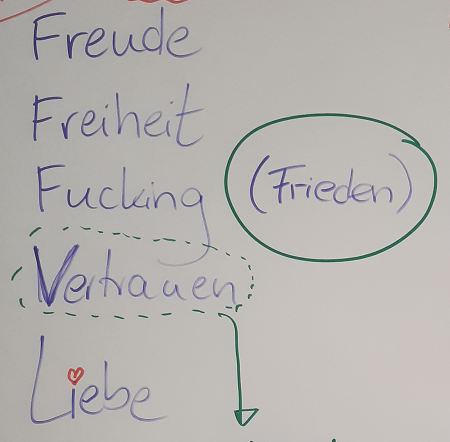 Freude
Freiheit
Fucking
(Frieden)
Vertrauen
Liebe